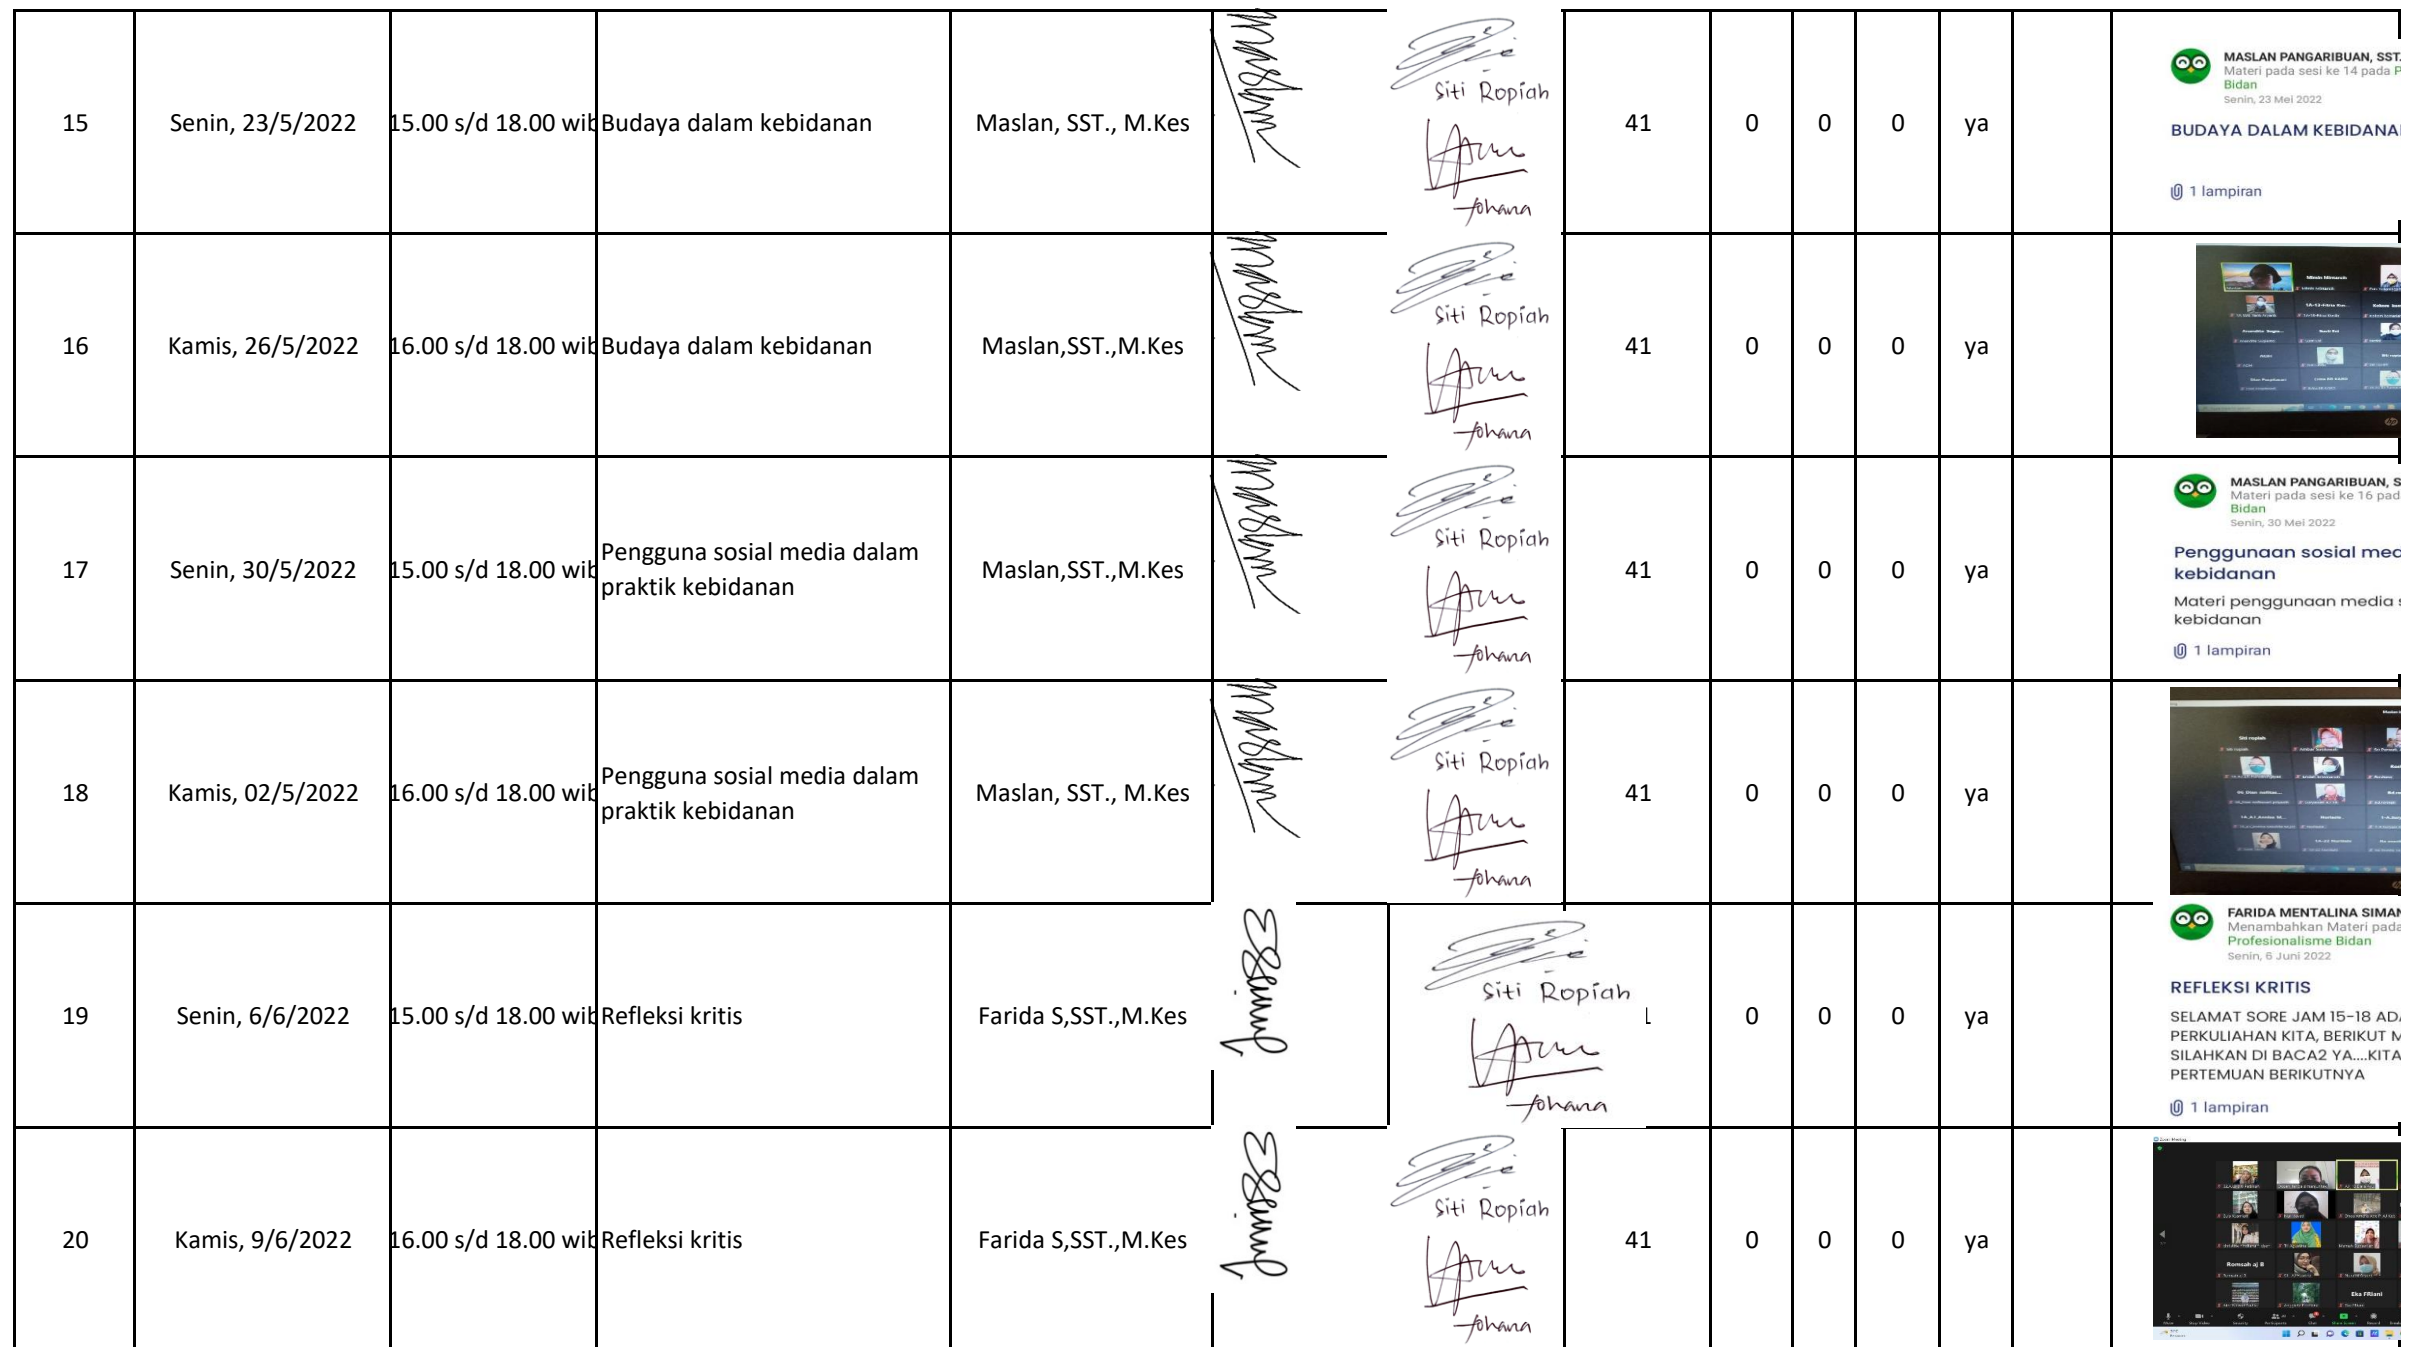 15
Senin, 23/5/2022
15.00 s/d 18.00 wib
Budaya dalam kebidanan
Maslan, SST., M.Kes
Siti Ropiah
Johana
41
0
0
0
ya
MASLAN PANGARIBUAN, SST.
Materi pada sesi ke 14 pada P
Bidan
Senin, 23 Mei 2022
BUDAYA DALAM KEBIDANAN
1 lampiran
16
Kamis, 26/5/2022
16.00 s/d 18.00 wib
Budaya dalam kebidanan
Maslan,SST.,M.Kes
Siti Ropiah
Johana
41
0
0
0
ya
17
Senin, 30/5/2022
15.00 s/d 18.00 wib
Pengguna sosial media dalam
praktik kebidanan
Maslan,SST.,M.Kes
Siti Ropiah
Johana
41
0
0
0
ya
MASLAN PANGARIBUAN, S
Materi pada sesi ke 16 pad
Bidan
Senin, 30 Mei 2022
Penggunaan sosial med
kebidanan
Materi penggunaan media s
kebidanan
1 lampiran
18
Kamis, 02/5/2022
16.00 s/d 18.00 wib
Pengguna sosial media dalam
praktik kebidanan
Maslan, SST., M.Kes
Siti Ropiah
Johana
41
0
0
0
ya
Siti ropiah
19
Senin, 6/6/2022
15.00 s/d 18.00 wib
Refleksi kritis
Farida S,SST.,M.Kes
Siti Ropiah
Johana
0
0
0
ya
FARIDA MENTALINA SIMAN
Menambahkan Materi pada
Profesionalisme Bidan
Senin, 6 Juni 2022
REFLEKSI KRITIS
SELAMAT SORE JAM 15-18 ADA
PERKULIAHAN KITA, BERIKUT M
SILAHKAN DI BACA2 YA....KITA
PERTEMUAN BERIKUTNYA
1 lampiran
20
Kamis, 9/6/2022
16.00 s/d 18.00 wib
Refleksi kritis
Farida S,SST.,M.Kes
Siti Ropiah
Johana
41
0
0
0
ya
Zoom Meeting
Romsah aj B
Eka FRiani